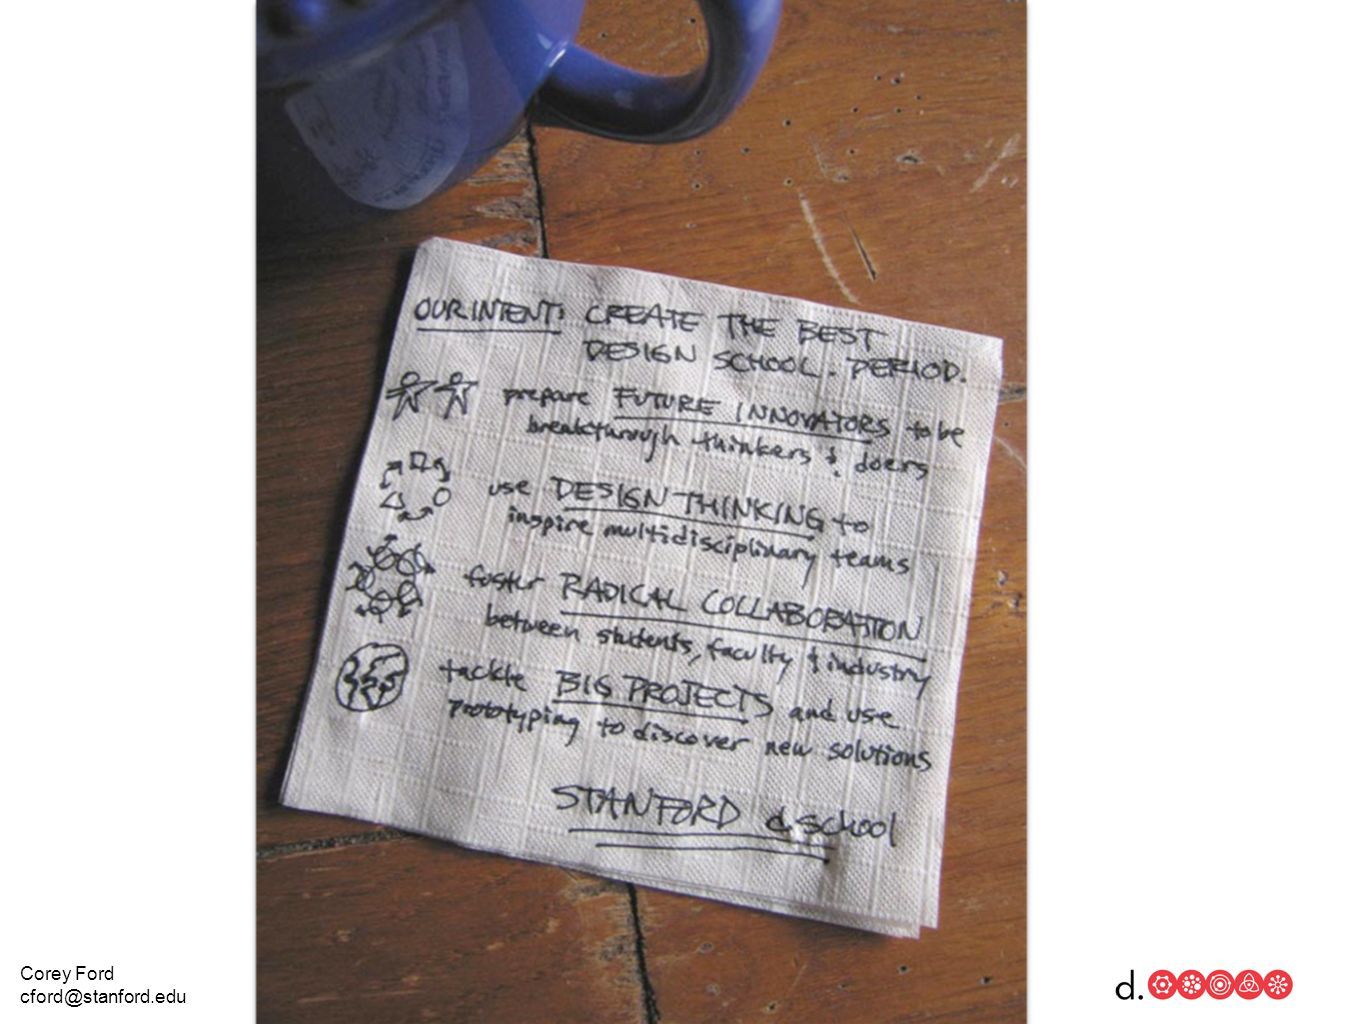 OUR INTENT: CREATE THE BEST
DESIGN SCHOOL. PERIOD.
prepare FUTURE INNOVATORS to be
breakthrough thinkers & doers
use DESIGN THINKING to
inspire multidisciplinary teams
foster RADICAL COLLABORATION
between students, faculty & industry
tackle BIG PROJECTS and use
prototyping to discover new solutions
STANFORD d.school
Corey Ford
cford@stanford.edu
d.